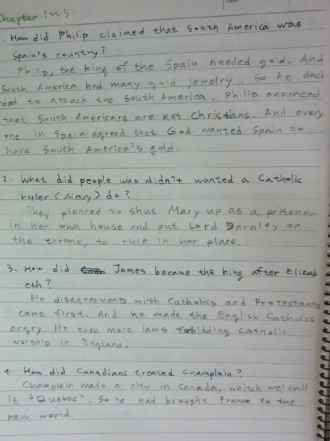 Chapter 1~5
1. How did Philip claimed that South America was
Spain's country?
Philip, the king of the Spain needed gold. And
South America had many gold jewelry. So he deci
ded to attack the South America. Philip anounced
that South Americans are not Christians. And every
one in Spain agreed that God wanted Spain to
have South America's gold.
2. What did people who didn't wanted a Catholic
ruler (Mary) do?
They planned to shut Mary up as a prisoner
in her own house and put Lord Darnley on
the throne, to rule in her place.
3. How did James became the king after Elizab
eth?
He disagreements with Catholics and Protestants
came first. And he made the English Catholics
angry. He even more laws forbidding catholic
worship in England.
4. How did Canadians creased Champlain?
Champlain made a city in Canada, which we call
it "Quebec". So he had brought France to the
new world.